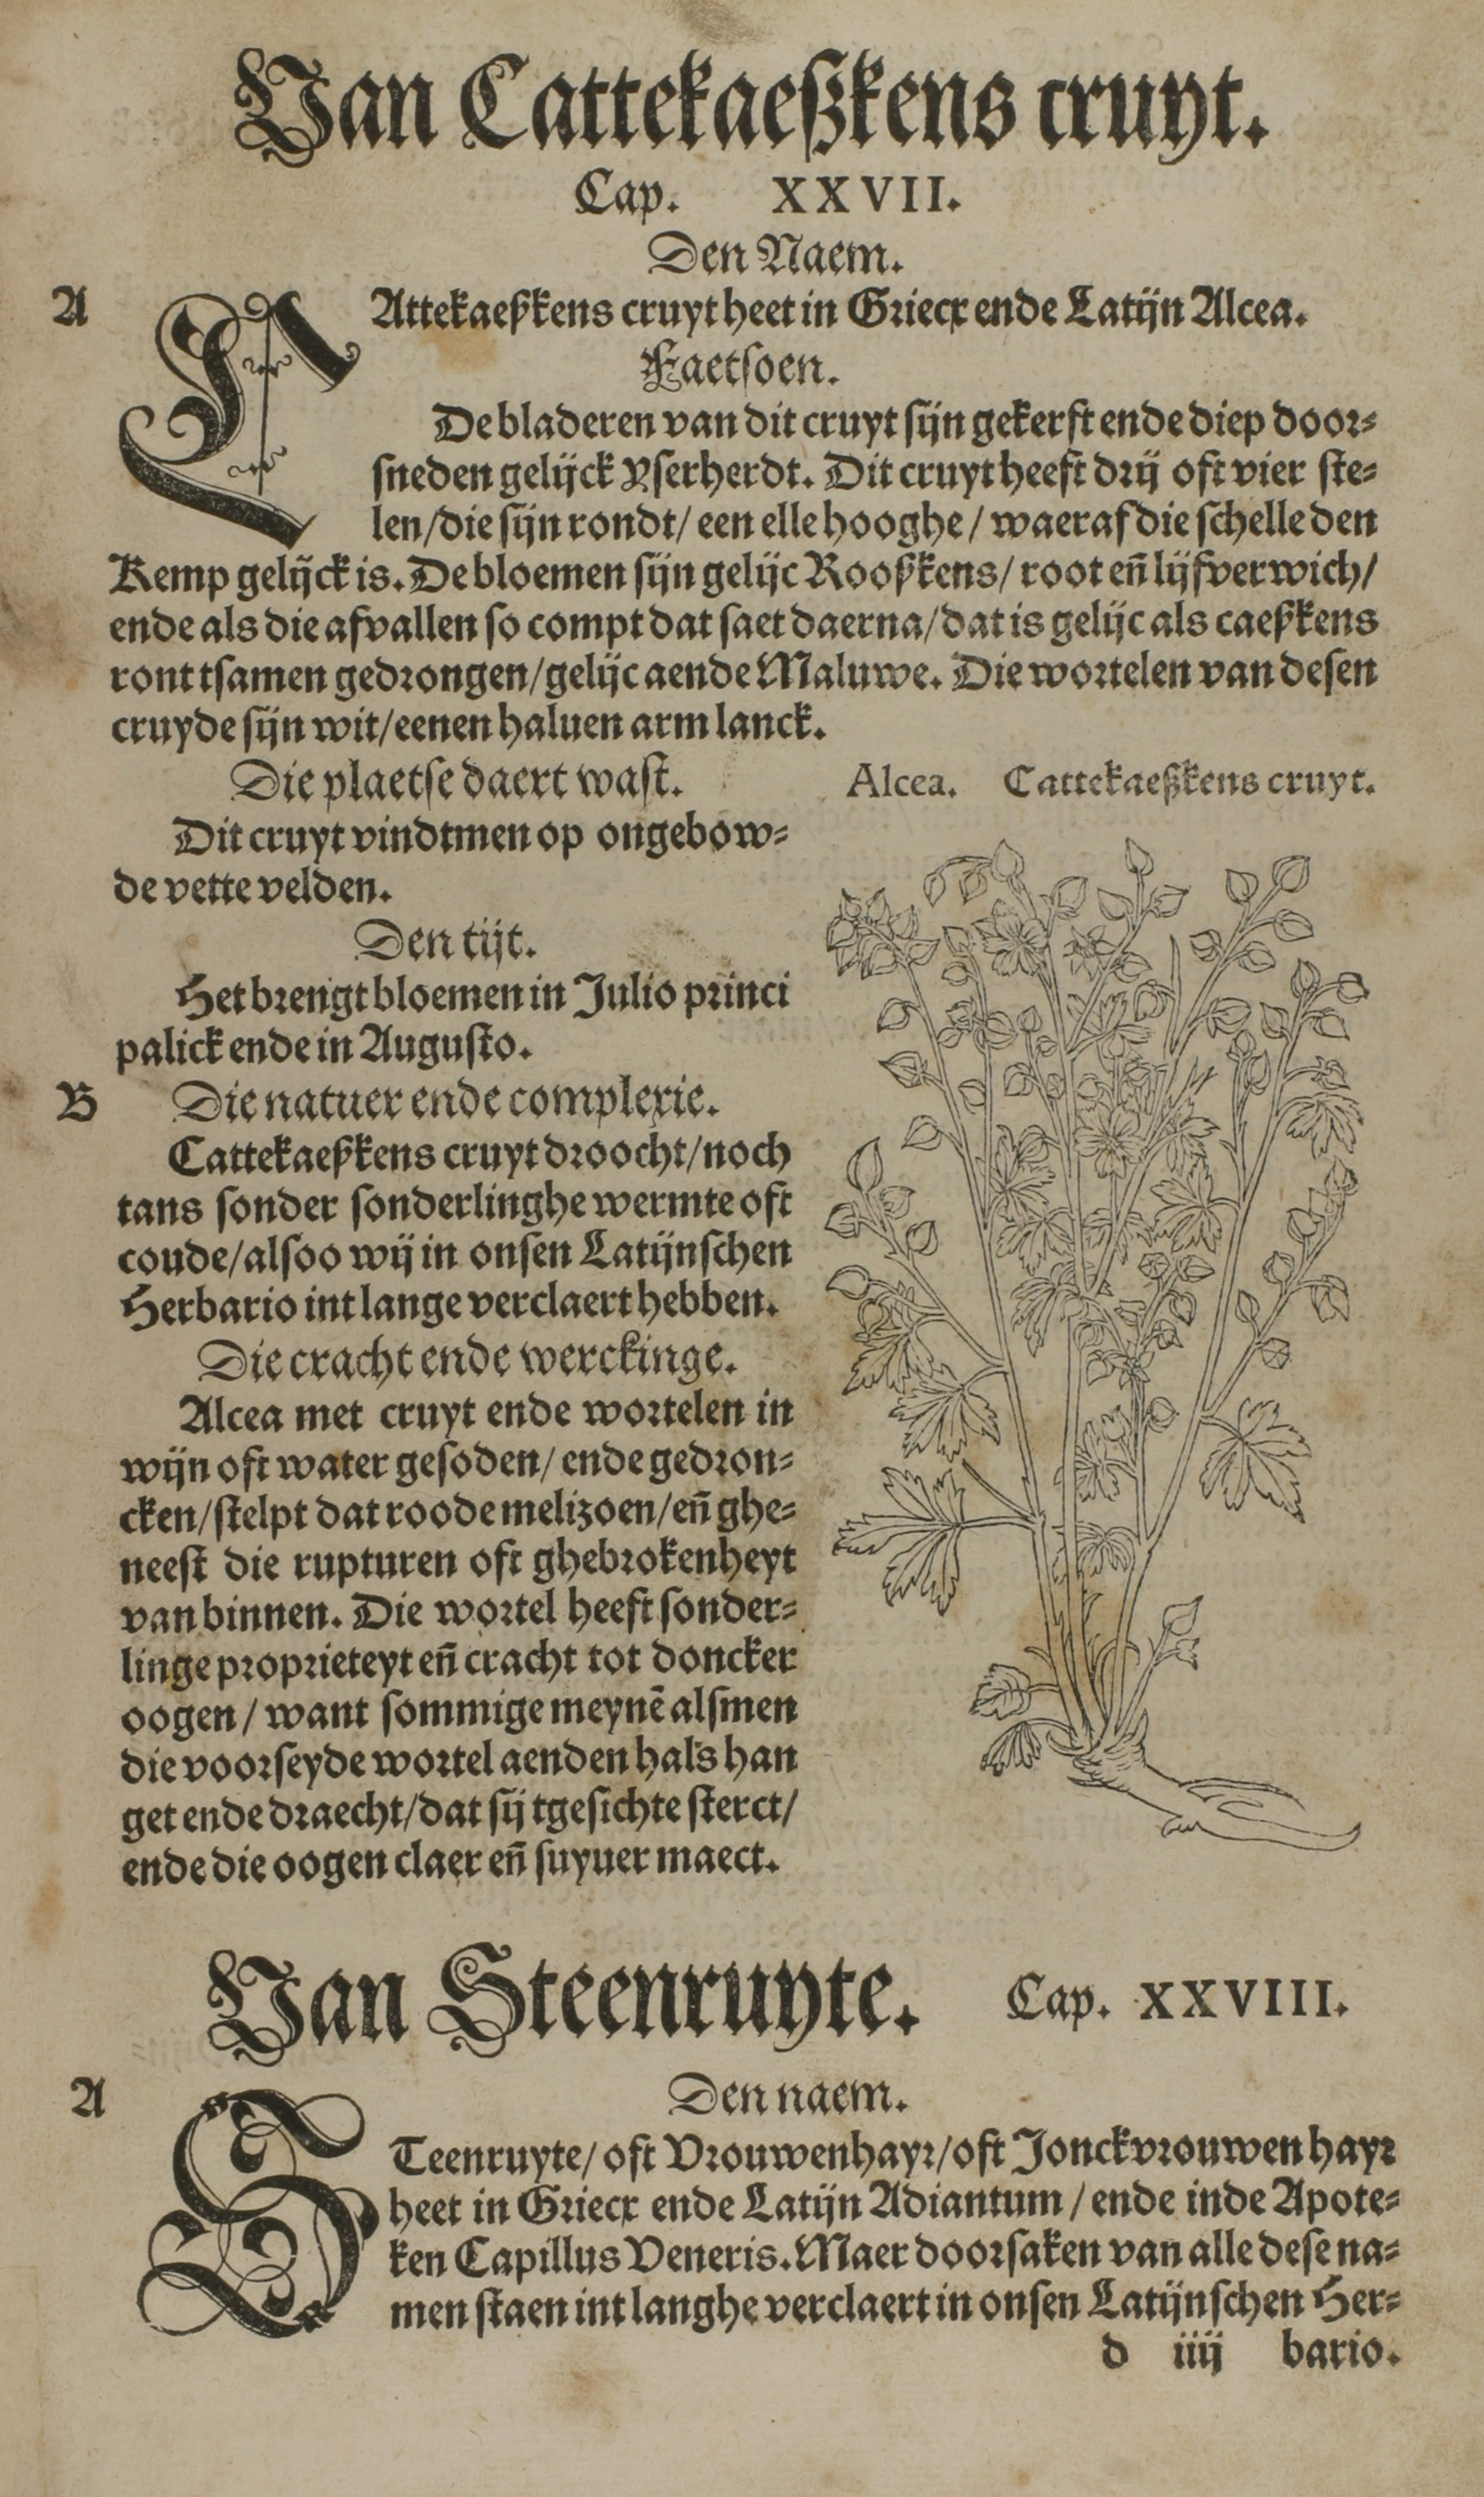 Van Cattekaeßkens cruyt.
Cap. XXVII.
Den Naem.
A
CAttekaeßkens cruyt heet in Griecx ende Latijn Alcea.
Faetsoen.
De bladeren van dit cruyt sijn gekerft ende diep door-
sneden gelijck Yserherdt. Dit cruyt heeft drij oft vier ste-
len/die sijn rondt/ een elle hooghe/ waeraf die schelle den
Kemp gelijck is. De bloemen sijn gelijc Rooßkens/ root eñ lijfverwich/
ende als die afvallen so compt dat saet daerna/dat is gelijc als caeßkens
ront tsamen gedrongen/gelijc aende Maluwe. Die wortelen van desen
cruyde sijn wit/eenen haluen arm lanck.
Die plaetse daert wast.
Dit cruyt vindtmen op ongebow-
de vette velden.
Den tijt.
Het brengt bloemen in Julio princi
palick ende in Augusto.
B
Die natuer ende complexie.
Cattekaeßkens cruyt droocht/noch
tans sonder sonderlinghe wermte oft
coude/alsoo wij in onsen Latijnschen
Herbario int lange verclaert hebben.
Die cracht ende werckinge.
Alcea met cruyt ende wortelen in
wijn oft water gesoden/ ende gedron-
cken/stelpt dat roode melizoen/eñ ghe-
neest die rupturen oft ghebrokenheyt
van binnen. Die wortel heeft sonder-
linge proprieteyt eñ cracht tot doncker
oogen/ want sommige meynẽ alsmen
die voorseyde wortel aenden hals han
get ende draecht/dat sij tgesichte sterct/
ende die oogen claer eñ suyuer maect.
Alcea. Cattekaeßkens cruyt.
Van Steenruyte. Cap. XXVIII.
A
Den naem.
STeenruyte/ oft Vrouwenhayr/oft Jonckvrouwen hayr
heet in Griecx ende Latijn Adiantum/ ende inde Apote-
ken Capillus Veneris. Maer doorsaken van alle dese na-
men staen int langhe verclaert in onsen Latijnschen Her-
d iiij bario.